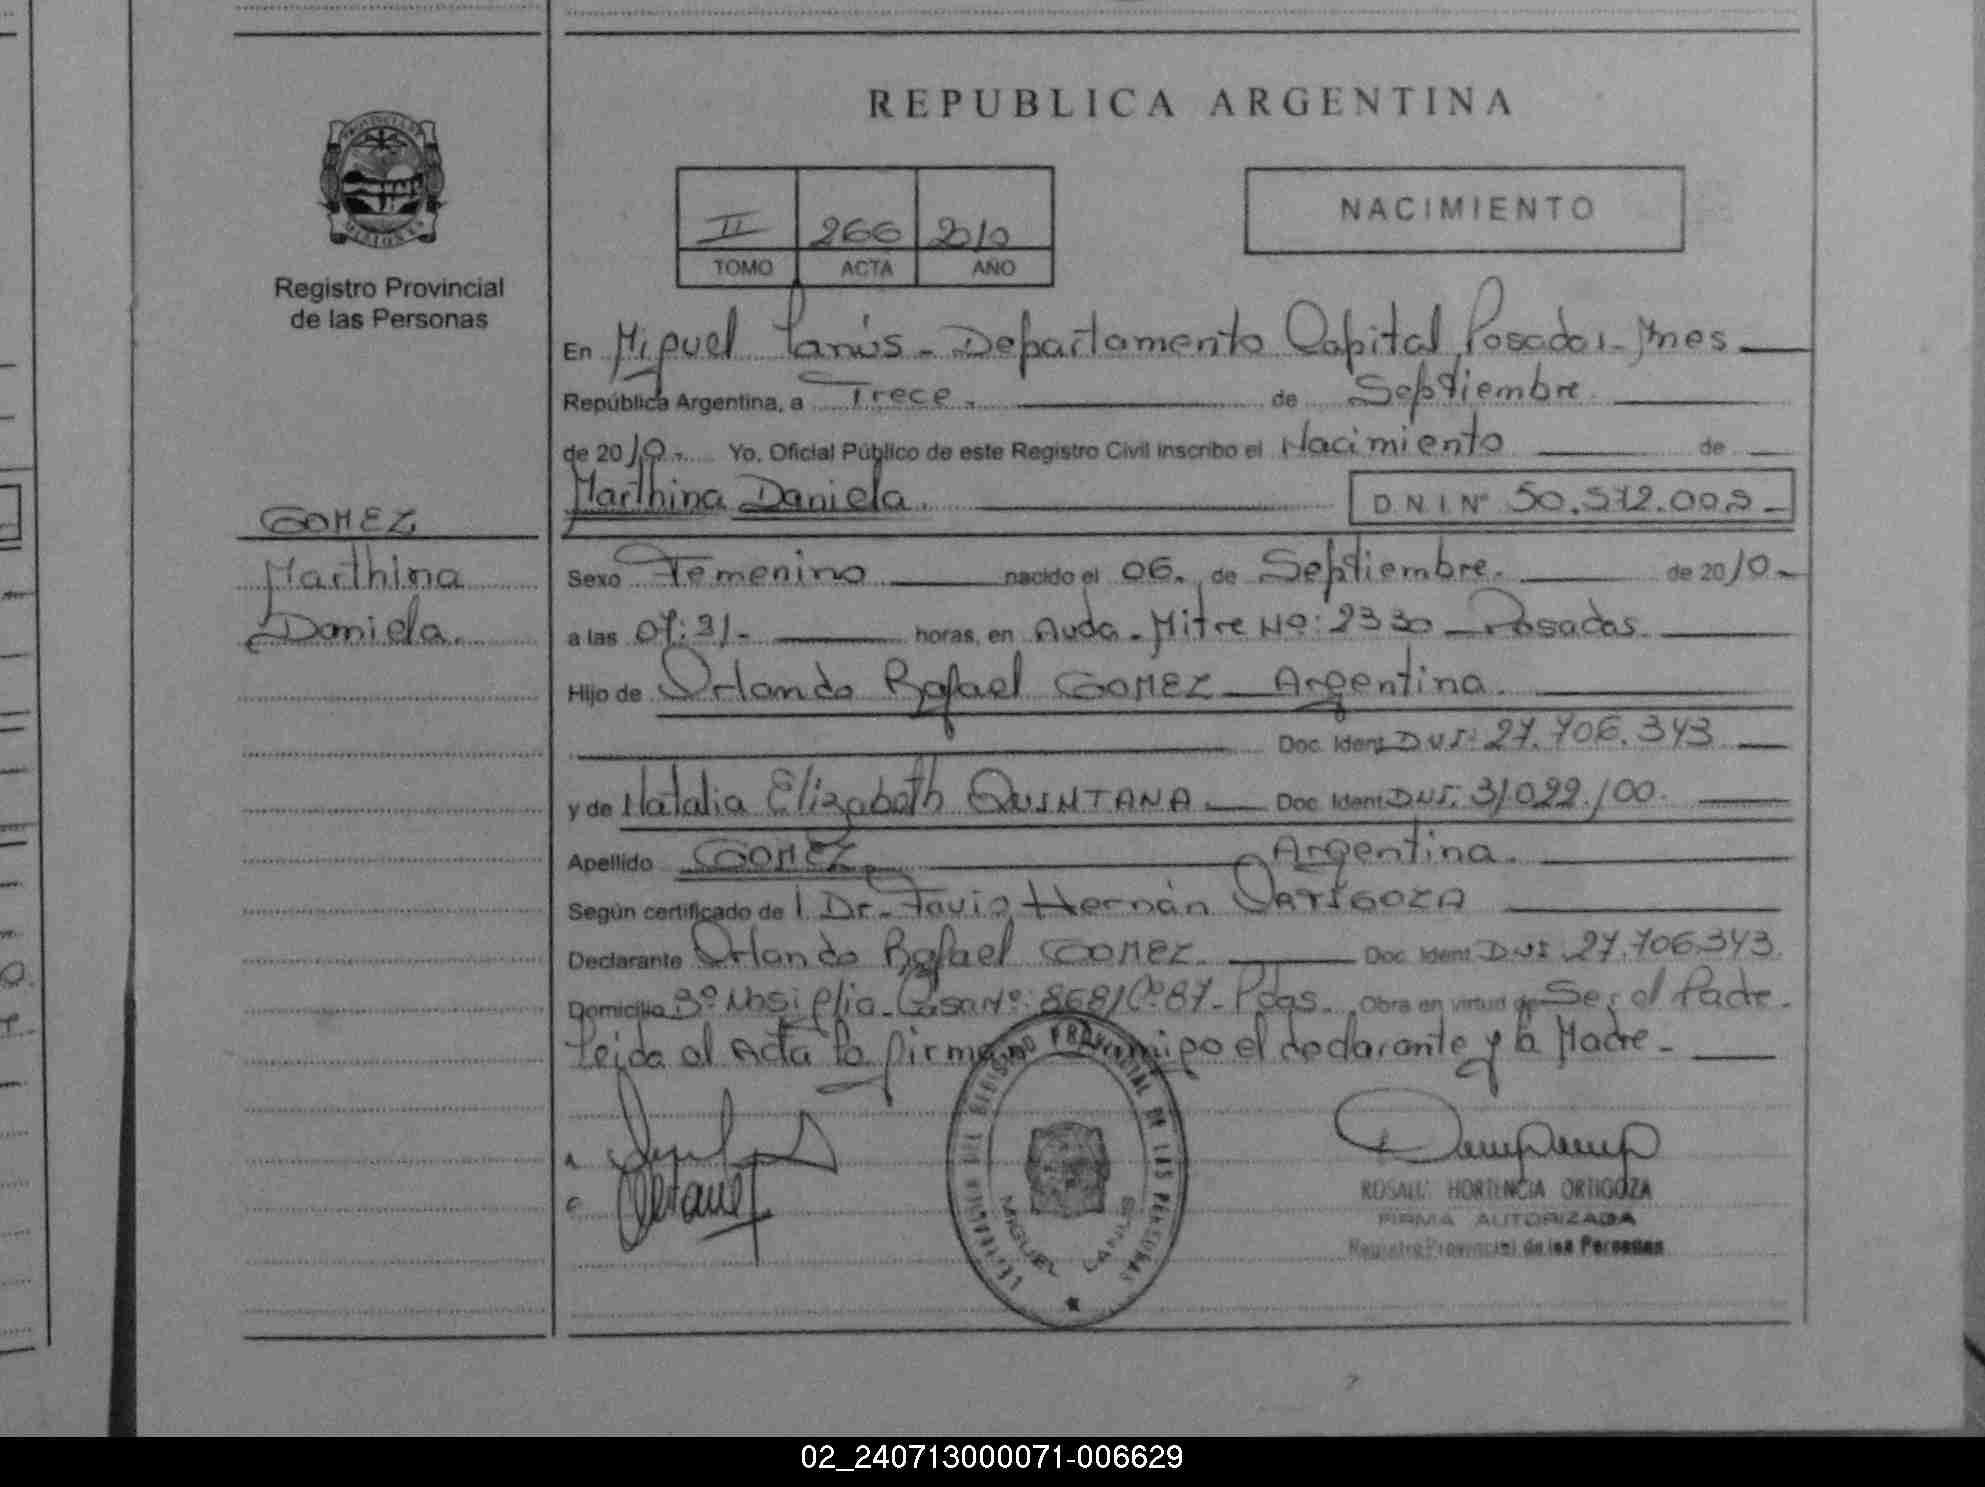 REPUBLICA ARGENTINA
PROVINCIA DE
MISIONES
Registro Provincial
de las Personas
II 266 2010
TOMO ACTA AÑO
NACIMIENTO
En Miguel Lanús - Departamento Capital Posadas - Mnes
República Argentina, a Trece. de Septiembre
de 2010.- Yo, Oficial Público de este Registro Civil inscribo el Nacimiento de
Marthina Daniela. D.N.I. Nº 50.572.002-
GOMEZ
Marthina
Daniela.
Sexo Femenino nacido el 06. de Septiembre. de 2010-
a las 07:31- horas, en Avda. Mitre Nº: 2330 - Posadas.
Hijo de Orlando Rafael GOMEZ - Argentina.
Doc. Ident. DNI: 27.706.343
y de Natalia Elizabeth QUINTANA Doc. Ident. DNI. 31022.100.
Apellido GOMEZ. Argentina.
Según certificado de Dr. Favio Hernán
Declarante Orlando Rafael GOMEZ. Doc. Ident. DNI 27.706.343.
Domicilio Bº Nosiglia - Casa Nº: 8681 Cº 87 - Pdas. Obra en virtud de Ser el Padre.
Leida el Acta la firman conmigo el declarante y la Madre -
REGISTRO PROVINCIAL DE LAS PERSONAS
MIGUEL LANUS
HORTENCIA ORTIGOZA
FIRMA AUTORIZADA
Registro Provincial de las Personas
02_240713000071-006629